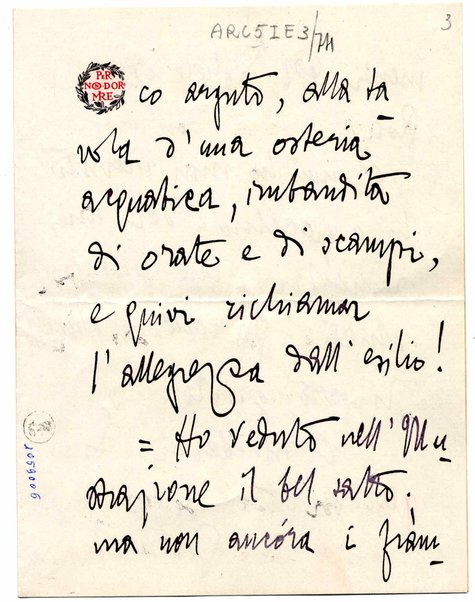 ARC5IE3/74
3
PER
NON DOR
MIRE
co arguto, alla ta
vola d'una osteria
acquatica, imbandita
di orate e di scampi,
e quivi richiamar
l'allegrezza dall'esilio!
= Ho veduto nell'Illu
strazione il bel salto.
ma non ancóra i fram